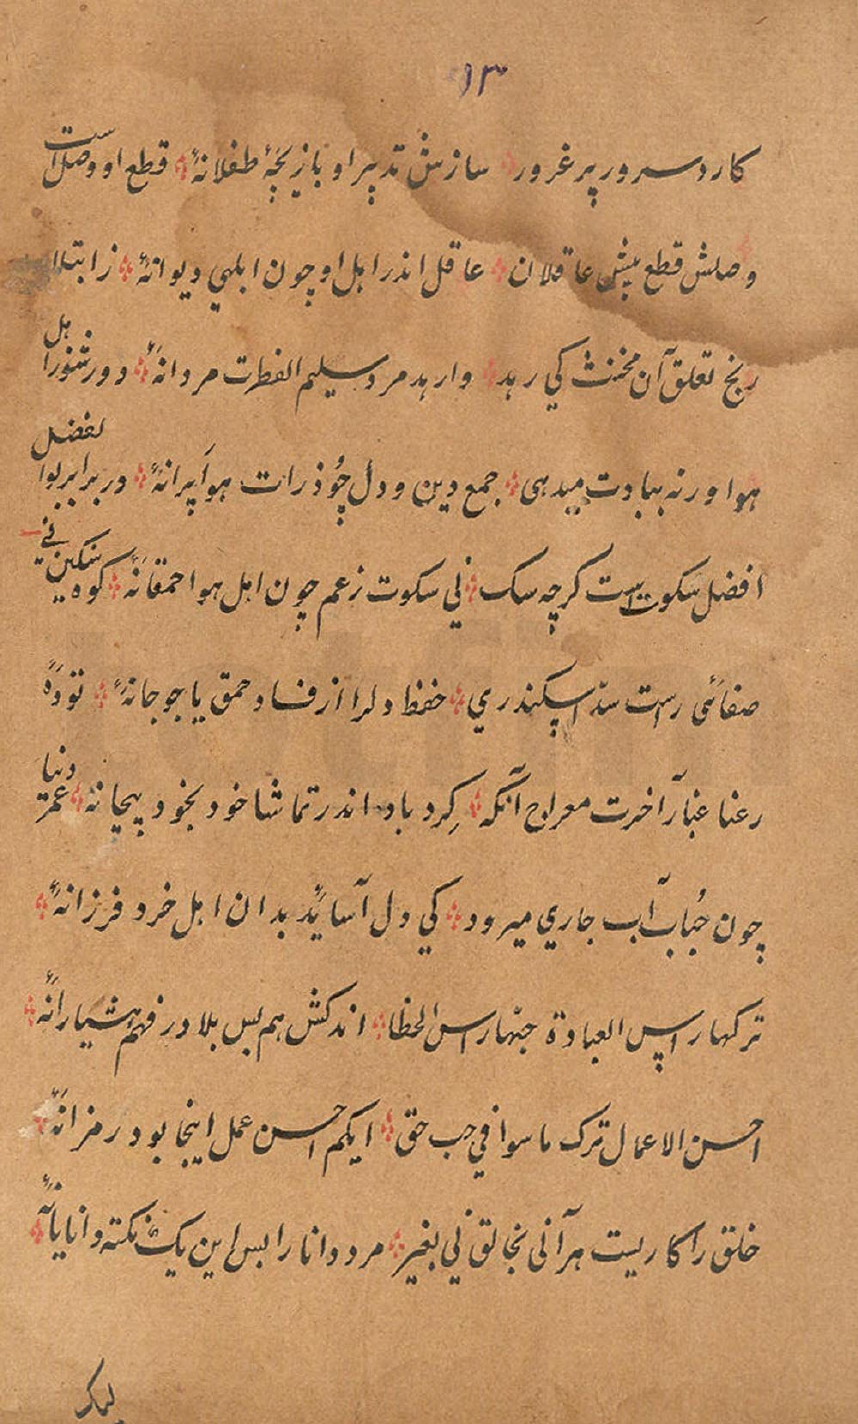 ۱۳
کار دسرور پر غرور سازش تدبیر او بازیچهٔ طفلانهٔ قطع او وصل است
وصلش قطع پیش عاقلان عاقل اندر اهل او چون ابلهي دیوانهٔ ز ابتلا
رنج تعلق آن مخنث کي رهد وارهد مرد سلیم الفطرت مردانهٔ دور شو را هل
هوا ورنه ببادت میدهی جمع دین و دل چو ذرات هوا پرانهٔ در برابر بوالفضل
افضل سکوت است گرچه سک ني سکوت زعم چون اهل هوا حمقانهٔ کوه سنگین نے
صفائی راست سد اسکندري حفظ دلرا از فساد حمق یاجوجانهٔ تودهٔ
رعنا غبار آخرت معراج آنکه کرد باد اندر تماشا خود بخود پیچانهٔ عمر دنیا
چون حباب آب جاري میرود کي دل آساید بدان اهل خرد فرزانهٔ
ترکها راس العبادة حبها راس الخطا اندکش هم بس بلا در فهم هشیارانهٔ
احسن الاعمال ترک ماسوا في حب حق ایکم احسن عمل اینجا بود رمزانهٔ
خلق را کاریست هر آنی بخالق ني بغیر مرد دانا را بس این یک نکته دانایانهٔ
لیک